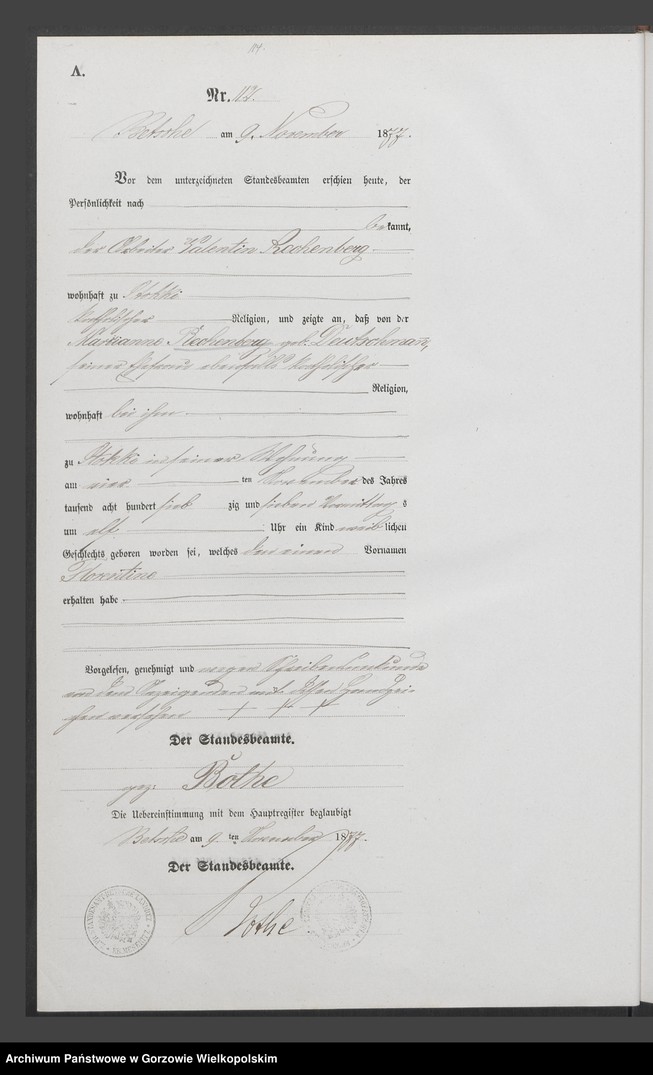 A.
Nr. 117.
Betsche am 9. November 1877.
Vor dem unterzeichneten Standesbeamten erschien heute, der
Persönlichkeit nach
bekannt,
der Arbeiter Valentin Rechenberg
wohnhaft zu Stokki
katholischer Religion, und zeigte an, daß von der
Marianne Rechenberg geb. Deutschmann,
seiner Ehefrau ebenfalls katholischer
Religion,
wohnhaft bei ihm
zu Stokki in seiner Wohnung
am vier ten November des Jahres
tausend acht hundert sieb zig und sieben Vormittag s
um elf Uhr ein Kind weib lichen
Geschlechts geboren worden sei, welches den einen Vornamen
Florentine
erhalten habe
Vorgelesen, genehmigt und wegen Schreibensunkunde
von dem Anzeigenden mit dessen Handzei-
chen versehen + + +
Der Standesbeamte.
gez. Bothe
Die Uebereinstimmung mit dem Hauptregister beglaubigt
Betsche am 9. ten November 1877.
Der Standesbeamte.
Bothe
Archiwum Państwowe w Gorzowie Wielkopolskim